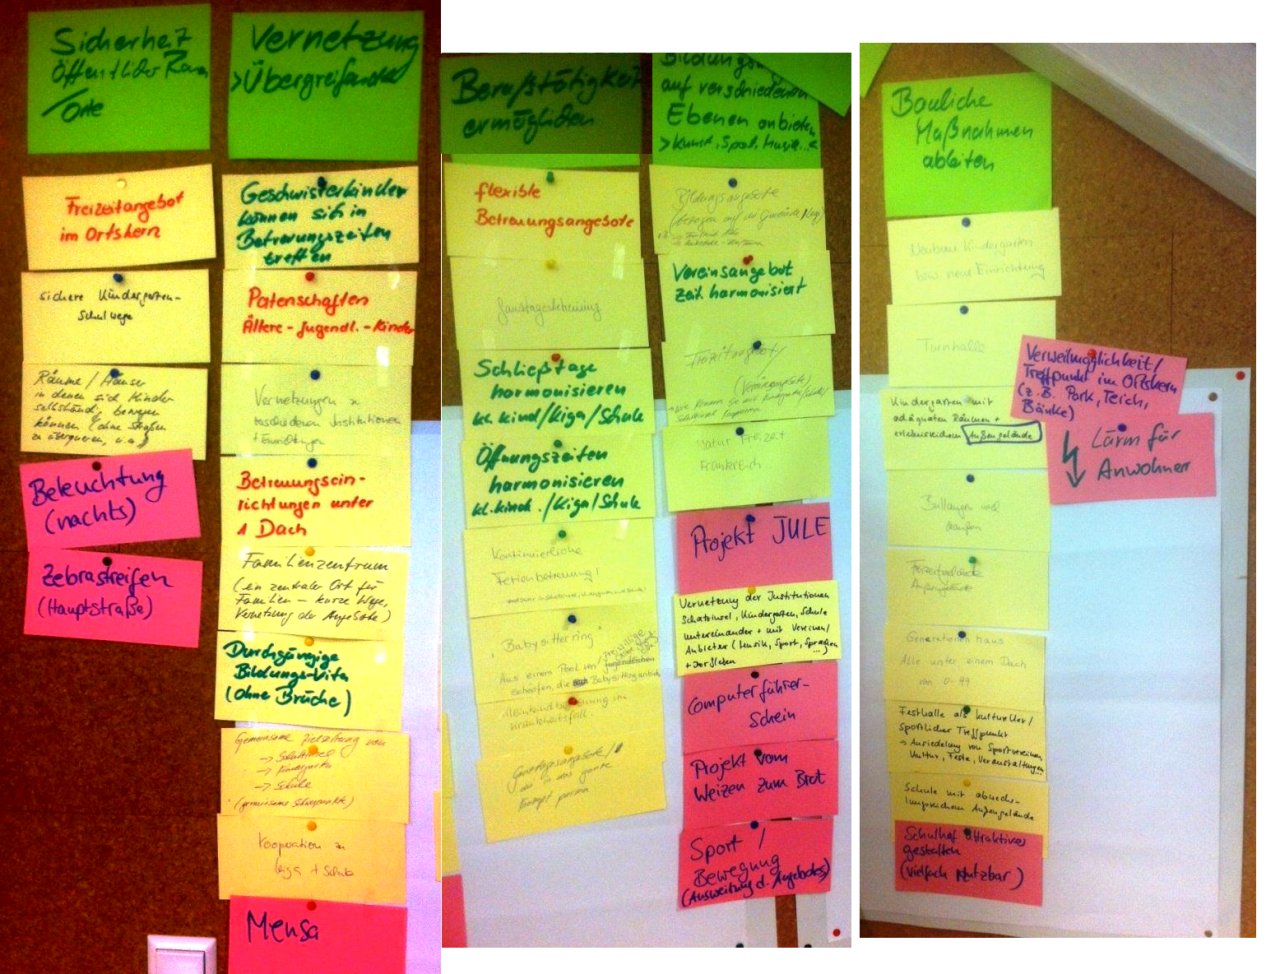 Sicherheit
Öffentlicher Raum
/Orte
Freizeitangebot
im Ortskern
sichere Kindergarten-
Schulwege
Räume / Häuser
in denen sich Kinder
selbständ. bewegen
können (ohne Straßen
zu überqueren, u.a.)
Beleuchtung
(nachts)
Zebrastreifen
(Hauptstraße)
Vernetzung
>Übergreifende
Geschwisterkinder
können sich in
Betreuungszeiten
treffen
Patenschaften
Ältere - Jugendl. - Kinder
Vernetzungen zu
Institutionen
+ Einrichtungen
Betreuungsein-
richtungen unter
1 Dach
Familienzentrum
(ein zentraler Ort für
Familien – kurze Wege,
Vernetzung der Angebote)
Durchgängige
Bildungs-Vita
(ohne Brüche)
Gemeinsame Zielsetzung von
→ Schatzinsel
→ Kindergarten
→ Schule
Kooperation zw.
Kiga + Schule
Mensa
Berufstätigkeit
ermöglichen
flexible
Betreuungsangebote
Ganztagesbetreuung
Schließtage
harmonisieren
kl. kind/Kiga/Schule
Öffnungszeiten
harmonisieren
kl. kind./Kiga/Schule
Kontinuierliche
Ferienbetreuung!
"Babysitterring"
Aus einem Pool von Jugendlichen
schöpfen, die Babysitting anbieten
Kleinkindbetreuung im
Krankheitsfall.
Ganztagsangebote/
die in das ganze
Konzept passen
Bildungs
auf verschiedenen
Ebenen anbieten
>Kunst, Sport, Musik...<
Bildungsangebote
Vereinsangebot
zeitl. harmonisiert
Freizeitangebot/
(Vereinsangebote)
Natur Freizeit
Projekt JULE
Vernetzung der Institutionen
Schatzinsel, Kindergarten, Schule
untereinander + mit Vereinen/
Anbieter (Musik, Sport, Sprachen
...)
+ Dorfleben
Computerführer-
Schein
Projekt vom
Weizen zum Brot
Sport /
Bewegung
(Ausweitung d. Angebotes)
Bauliche
Maßnahmen
ableiten
Neubau Kindergarten
bzw. neue Einrichtung
Turnhalle
Kindergarten mit
adäquaten Räumen +
erlebnisreichem Außengelände
Generationenhaus
Alle unter einem Dach
von 0-99
Festhalle als kultureller/
sportlicher Treffpunkt
→ Ansiedelung von Sportvereinen
Kultur, Feste, Veranstaltungen
Schule mit abwechs-
lungsreichem Außengelände
Schulhof attraktiver
gestalten
(vielfach nutzbar)
Verweilmöglichkeit/
Treffpunkt im Ortskern
(z. B. Park, Teich,
Bänke)
Lärm für
Anwohner